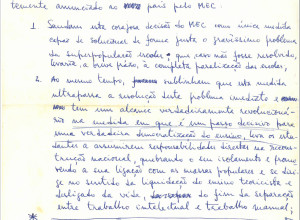 temente anunciado ao país pelo MEC:
1. Saudam esta corajosa decisão do MEC como única medida
capaz de solucionar de forma justa o gravíssimo problema
da superpopulação escolar que, caso não fosse resolvido,
levaria, a breve prazo, à completa paralização das aulas,
2. Ao mesmo tempo, sublinham que esta medida
ultrapassa a resolução deste problema imediato e
tem um alcance verdadeiramente revolucioná-
rio na medida em que é um passo decisivo para
uma verdadeira democratização do ensino, leva os es-
tudantes a assumirem responsabilidade directa na recons-
trução nacional, quebrando o seu isolamento e promo-
vendo a sua ligação com as massas populares e se diri-
ge no sentido da liquidação do ensino tecnicista e
desligado da vida, do fim da separação
entre trabalho intelectual e trabalho manual,